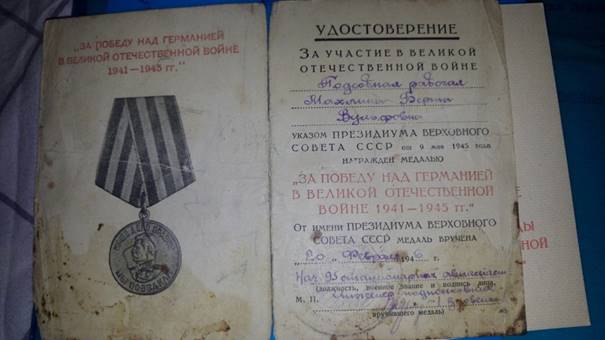 „ЗА ПОБЕДУ НАД ГЕРМАНИЕЙ
В ВЕЛИКОЙ ОТЕЧЕСТВЕННОЙ ВОЙНЕ
1941—1945 гг."
НАШЕ ДЕЛО ПРАВОЕ
МЫ ПОБЕДИЛИ
УДОСТОВЕРЕНИЕ
ЗА УЧАСТИЕ В ВЕЛИКОЙ
ОТЕЧЕСТВЕННОЙ ВОЙНЕ
Подсобная рабочая
Берта
Вульфовна
УКАЗОМ ПРЕЗИДИУМА ВЕРХОВНОГО
СОВЕТА СССР от 9 мая 1945 года
НАГРАЖДЕН МЕДАЛЬЮ
„ЗА ПОБЕДУ НАД ГЕРМАНИЕЙ
В ВЕЛИКОЙ ОТЕЧЕСТВЕННОЙ
ВОЙНЕ 1941—1945 гг."
От имени ПРЕЗИДИУМА ВЕРХОВНОГО
СОВЕТА СССР МЕДАЛЬ ВРУЧЕНА
„20" Февраля 1946 г.
Нач.
(должность, военное звание и подпись лица,
М. П. инженер подполковник
вручившего медаль)
ДЫ
НОЙ